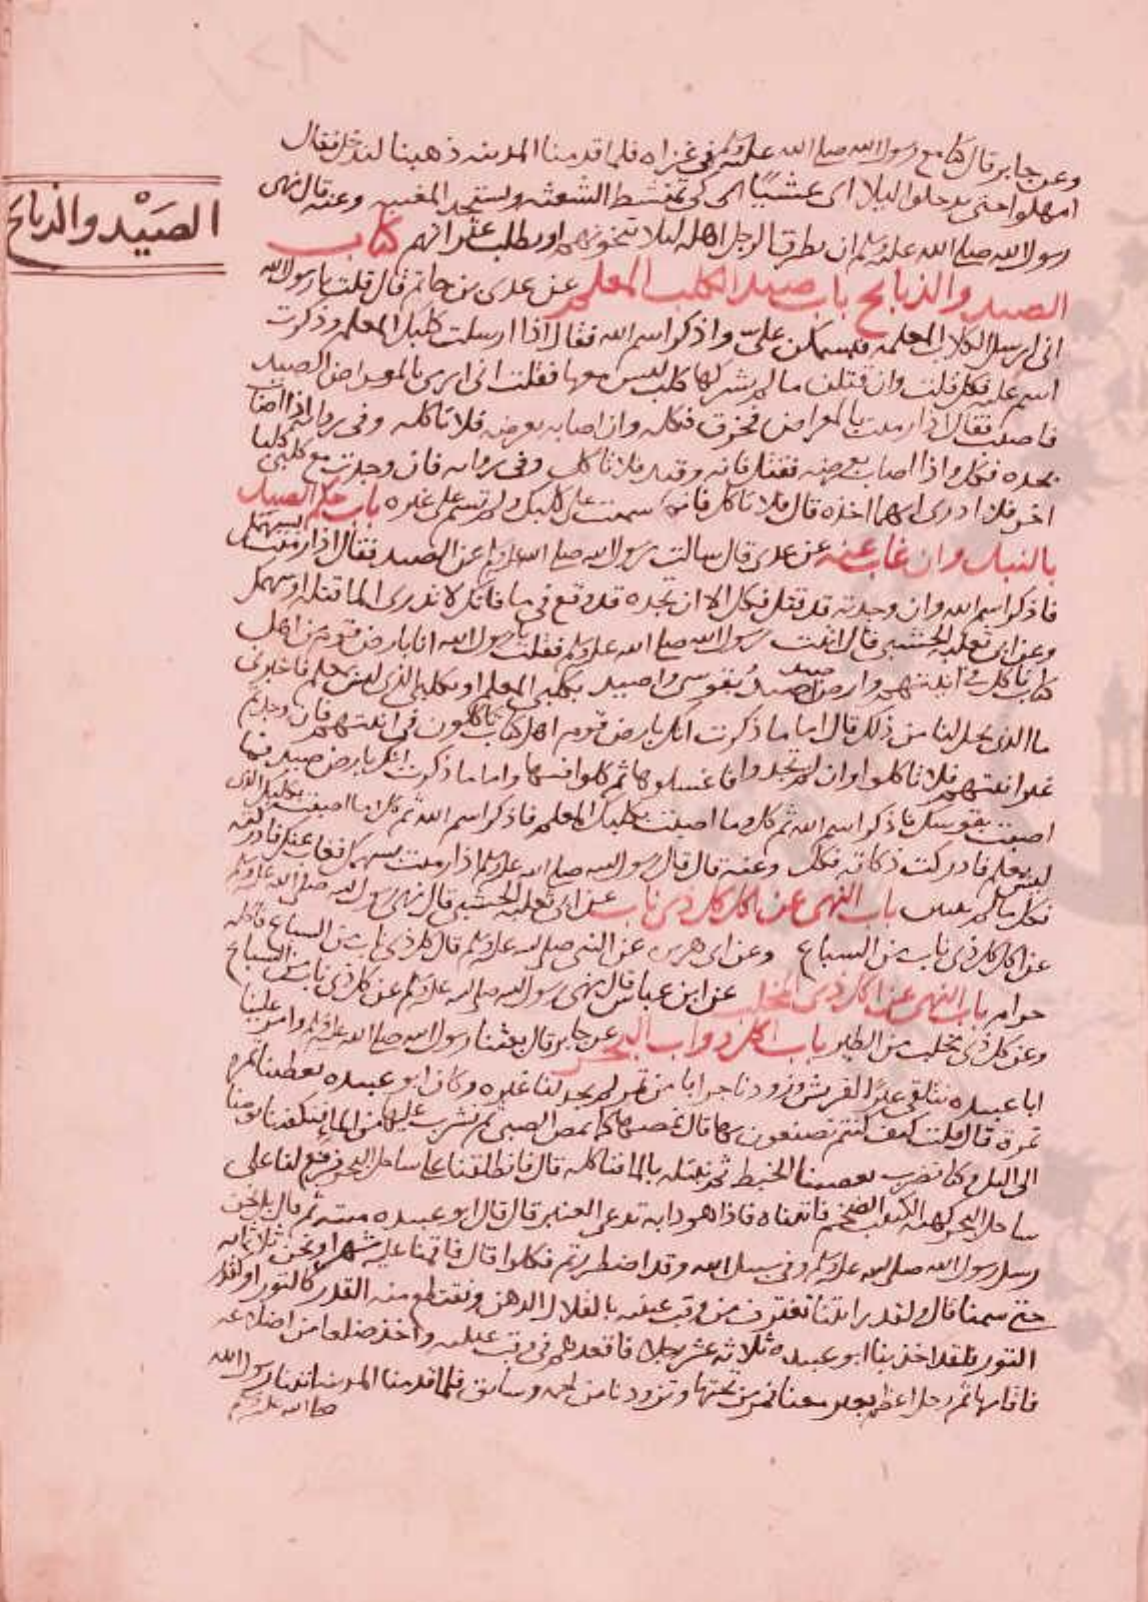 الصَيْد والذبائح
وعن جابر قال كنا مع رسول الله صلى الله عليه وسلم في غزاة فلما قدمنا المدينة ذهبنا لندخل فقال
امهلوا حتى ندخلوا ليلا اى عشيّا اى كى تمتشط الشعثه وتستحد المغيبه وعنه قال نهى
رسول الله صلى الله عليه وسلم ان يطرق الرجل اهله ليلا يتخونهم او يطلب عثراتهم كتاب
الصيد والذبائح باب صيد الكلب المعلم عن عدى بن حاتم قال قلت يا رسول الله
انى ارسل الكلاب المعلمه فيمسكن علىّ واذكر اسم الله فقال اذا ارسلت كلبك المعلم وذكرت
اسم عليه فكل قلت وان قتلن قال وان قتلن مالم يشركها كلب ليس معها فقلت انى ارمى بالمعراض الصيد
فاصيب فقال اذا رميت بالمعراض فخزق فكله وان اصابه بعرضه فلا تاكله وفى روايه اذا اصاب
بحده فكل واذا اصاب بعرضه فقتل فانه وقيذ فلا تاكل وفى روايه فان وجدت مع كلبى كلبا
اخر فلا ادرى ايهما اخذه قال فلا تاكل فانما سميت على كلبك ولم تسم على غيره باب حكم الصيد
بالنبل وان غاب عنه عن عدى قال سالت رسول الله صلى الله عليه وسلم عن الصيد فقال اذا رميت بسهمك
فاذكر اسم الله وان وجدته قد قتل فكل الا ان تجده قد وقع فى ما فانك لا تدرى الما قتله او سهمك
وعن ابى ثعلبه الخشنى قال اتيت رسول الله صلى الله عليه وسلم فقلت يا رسول الله انا بارض قوم من اهل
كتاب ناكل فى انيتهم وارض صيد اصيدُ بقوسى واصيد بكلبى المعلم او بكلبى الذى ليس بمعلم فاخبرنى
ما الذى يحل لنا من ذلك قال اما ما ذكرت انك بارض قوم اهل كتاب تاكلون فى انيتهم فان وجدتم
غير انيتهم فلا تاكلوا وان لم تجدوا فاغسلوها ثم كلوا فيها واما ما ذكرت انك بارض صيد فما
اصبت بقوسك فاذكر اسم الله ثم كل وما اصبت بكلبك المعلم فاذكر اسم الله ثم كل وما اصبت بكلبك الذى
ليس بمعلم فادركت ذكاته فكل وعنه قال قال رسول الله صلى الله عليه وسلم اذا رميت بسهمك فغاب عنك فادركته
فكل مالم ينتن باب النهى عن اكل كل ذى ناب عن ابى ثعلبه الخشنى قال نهى رسول الله صلى الله عليه وسلم
عن اكل كل ذى ناب من السباع وعن ابى هريره عن النبى صلى الله عليه وسلم قال كل ذى ناب من السباع فاكله
حرام باب النهى عن اكل ذى المخلب عن ابن عباس قال نهى رسول الله صلى الله عليه وسلم عن كل ذى ناب من السباع
وعن كل ذى مخلب من الطير باب اكل دواب البحر عن جابر قال بعثنا رسول الله صلى الله عليه وسلم وامر علينا
ابا عبيده نتلقى عيرًا لقريش وزودنا جرابا من تمر لم يجد لنا غيره وكان ابو عبيده يعطينا تمره
تمرة قال قلت كيف كنتم تصنعون بها قال نمصها كما يمص الصبى ثم نشرب عليها من الماء فتكفينا يومنا
الى الليل وكنا نضرب بعصينا الخبط ثم نبله بالما فناكله قال فانطلقنا على ساحل البحر فرفع لنا على
ساحل البحر كهيئة الكثيب الضخم فاتيناه فاذا هو دابه تدعى العنبر قال قال ابو عبيده ميته ثم قال بل نحن
رسل رسول الله صلى الله عليه وسلم وفى سبيل الله وقد اضطررتم فكلوا قال فاقمنا عليه شهرا ونحن ثلاثمايه
حتى سمنا قال ولقد رايتنا نغترف من وقب عينه بالقلال الدهن ونقتطع منه القدر كالثور او كقدر
الثور فلقد اخذ بنا ابو عبيده ثلاثة عشر رجلا فاقعدهم فى وقب عينه واخذ ضلعا من اضلاعه
فاقامها ثم رحل اعظم بعير معنا فمر من تحتها وتزودنا من لحمه وشايق فلما قدمنا المدينه اتينا رسول الله
صلى الله عليه وسلم